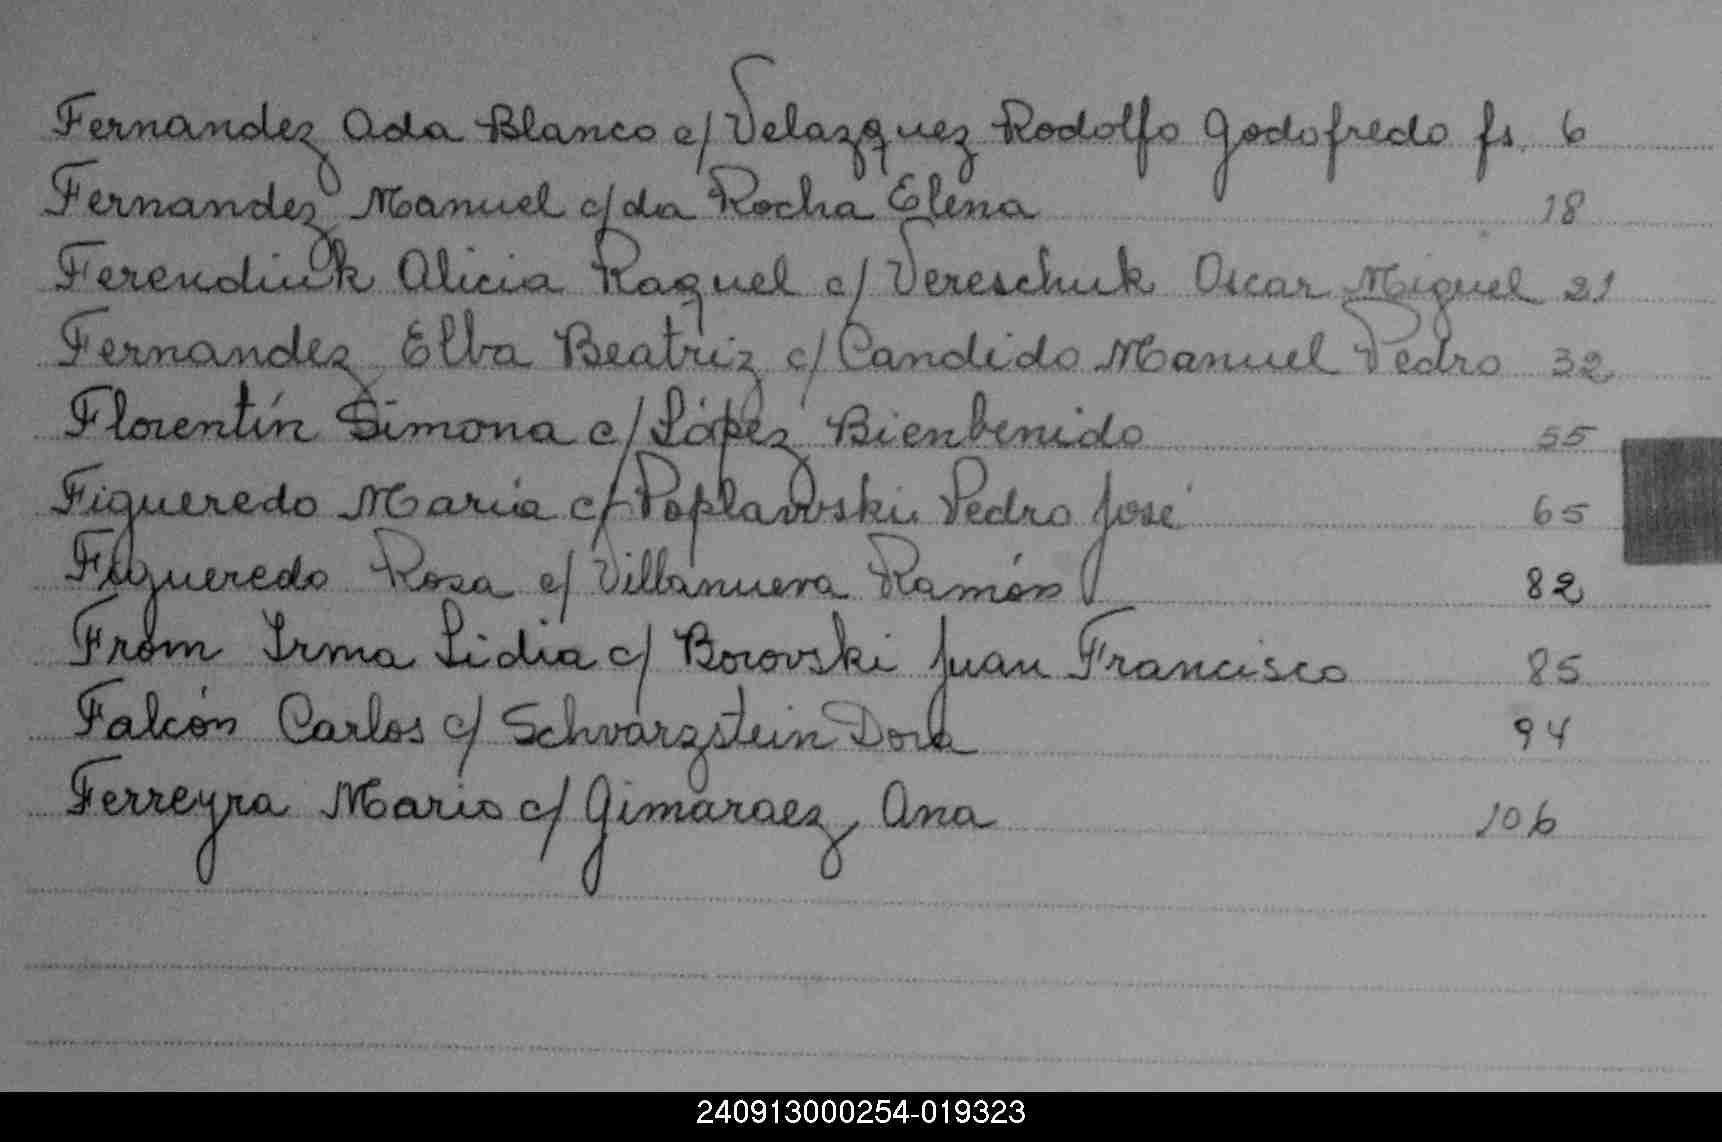 Fernandez Ada Blanco c/ Velazquez Rodolfo Godofredo fs. 6
Fernandez Manuel c/ da Rocha Elena 18
Ferendiuk Alicia Raquel c/ Vereschuk Oscar Miguel 21
Fernandez Elba Beatriz c/ Candido Manuel Pedro 32
Florentín Simona c/ López Bienbenido 55
Figueredo María c/ Poplavvski Pedro José 65
Figueredo Rosa c/ Villanueva Ramón 82
From Irma Lidia c/ Borovski Juan Francisco 85
Falcón Carlos c/ Schvarzstein Dora 94
Ferreyra Mario c/ Gimaraez Ana 106
240913000254-019323